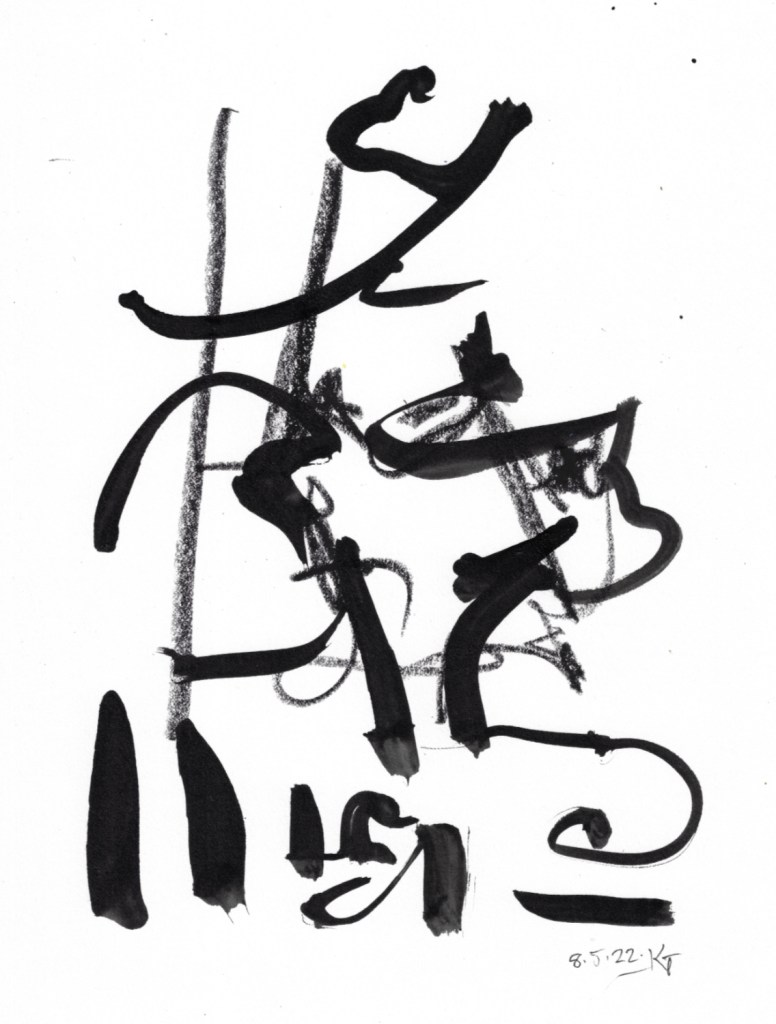 8.5.22. KT